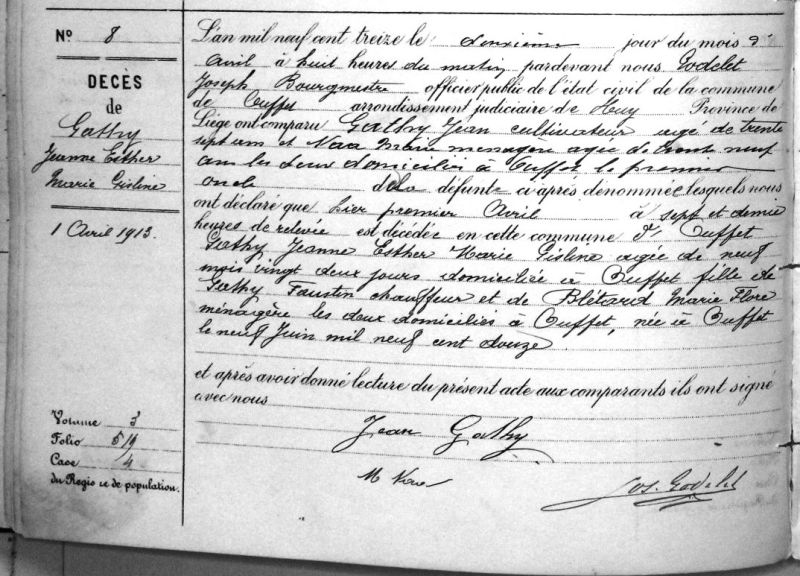 N° 8
DECÈS
de
Gathy
Jeanne Esther
Marie Gisline
1 Avril 1913.
Volume 3
Folio 519
Case 4
du Regis re de population.
L'an mil neuf cent treize le deuxième jour du mois d'
Avril à huit heures du matin, pardevant nous Godelet
Joseph Bourgmestre officier public de l'état civil de la commune
de Ouffet arrondissement judiciaire de Huy Province de
Liège ont comparu Gathy Jean cultivateur agé de trente
sept ans et Naa Marie menagère agée de trente neuf
ans les deux domiciliés à Ouffet, le premier
oncle de la défunte ci-après denommée lesquels nous
ont déclaré que hier premier Avril à sept et demie
heures de relevée est décédée en cette commune d' Ouffet
Gathy Jeanne Esther Marie Gisline agée de neuf
mois vingt deux jours domiciliée à Ouffet fille de
Gathy Faustin chauffeur et de Blétard Marie Flore
ménagère les deux domiciliés à Ouffet, née à Ouffet
le neuf Juin mil neuf cent douze
et après avoir donné lecture du présent acte aux comparants ils ont signé
avec nous
Jean Gathy
M
Jos. Godelet